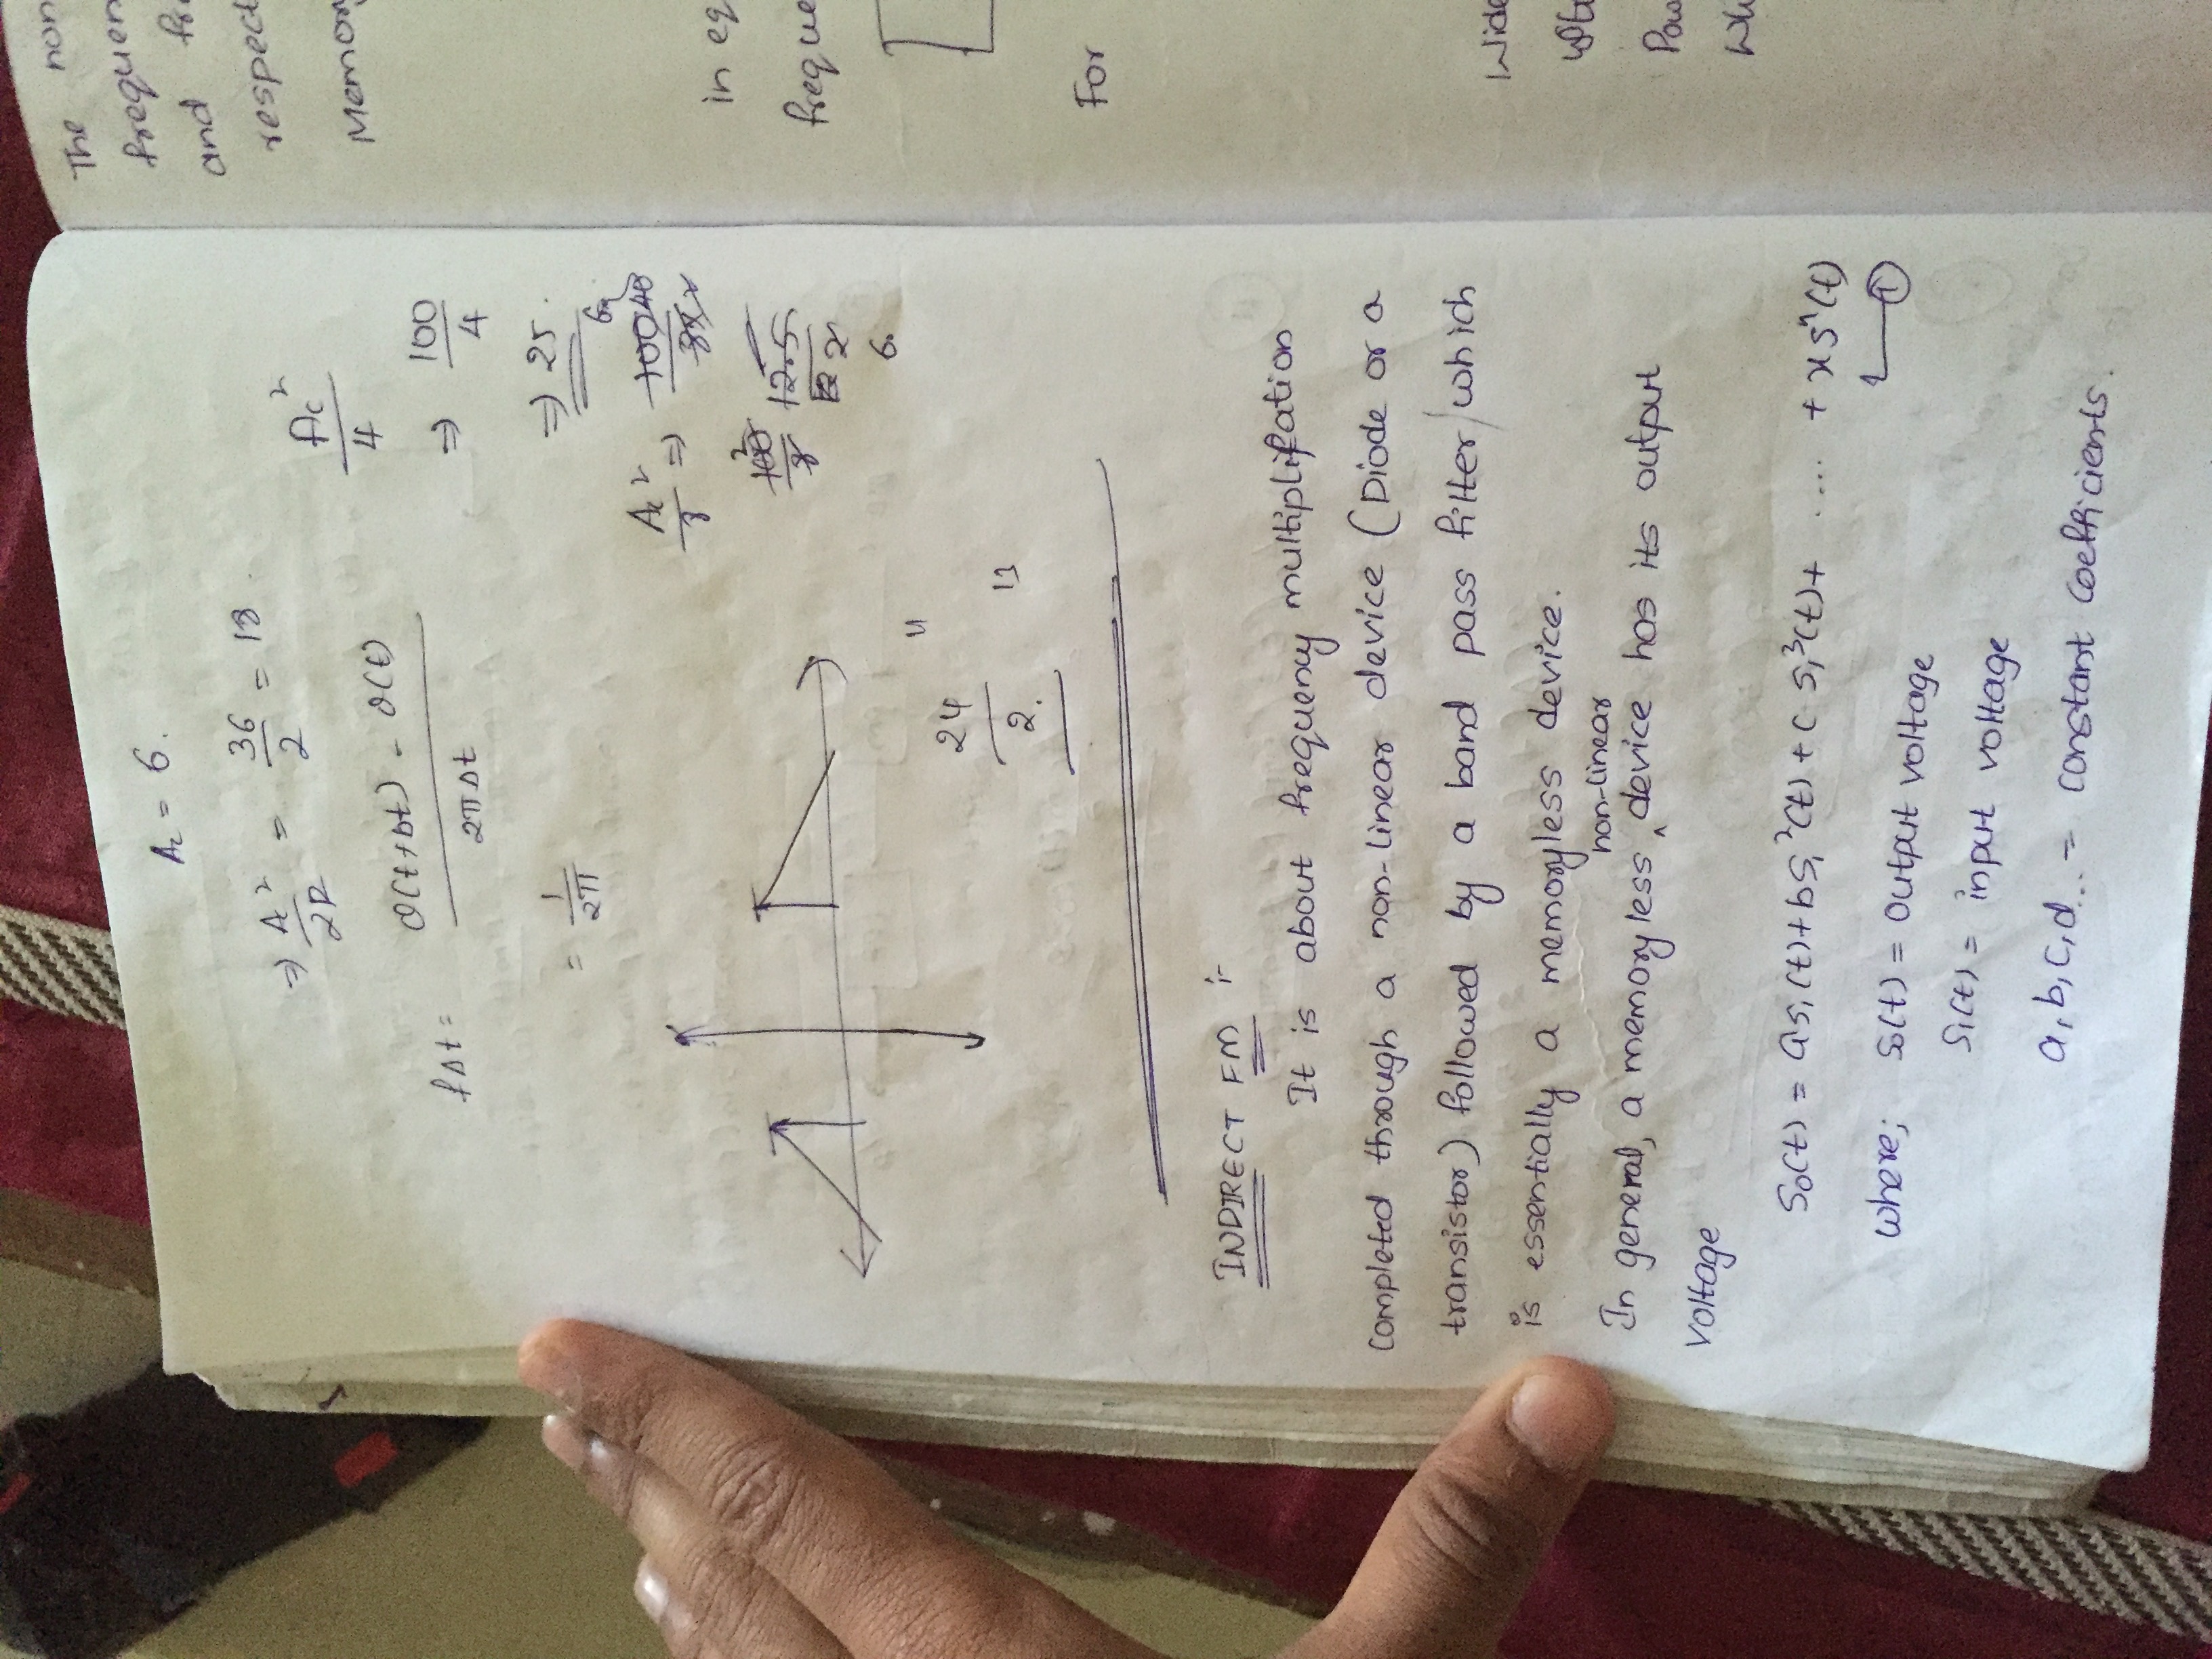 Ac = 6.
⇒ A²/2R = 36/2 = 18.
Ac²/4
fΔt = θ(t+Δt) - θ(t) / 2πΔt
⇒ 100/4
= 1/2π
⇒ 25.
Ac²/8 ⇒
12.5
2
6.
24/2.
11
13
INDIRECT FM :-
It is about frequency multiplification
completed through a non-linear device (Diode or a
transistor) followed by a band pass filter/which
is essentially a memoryless device.
non-linear
In general, a memoryless ^ device has its output
voltage
So(t) = aS₁(t)+bS₁²(t)+c S₁³(t)+ .... + xsⁿ(t)
①
where; So(t) = output voltage
S₁(t) = input voltage
a,b,c,d... = constant coefficients.
The
and
respect
in eq
For